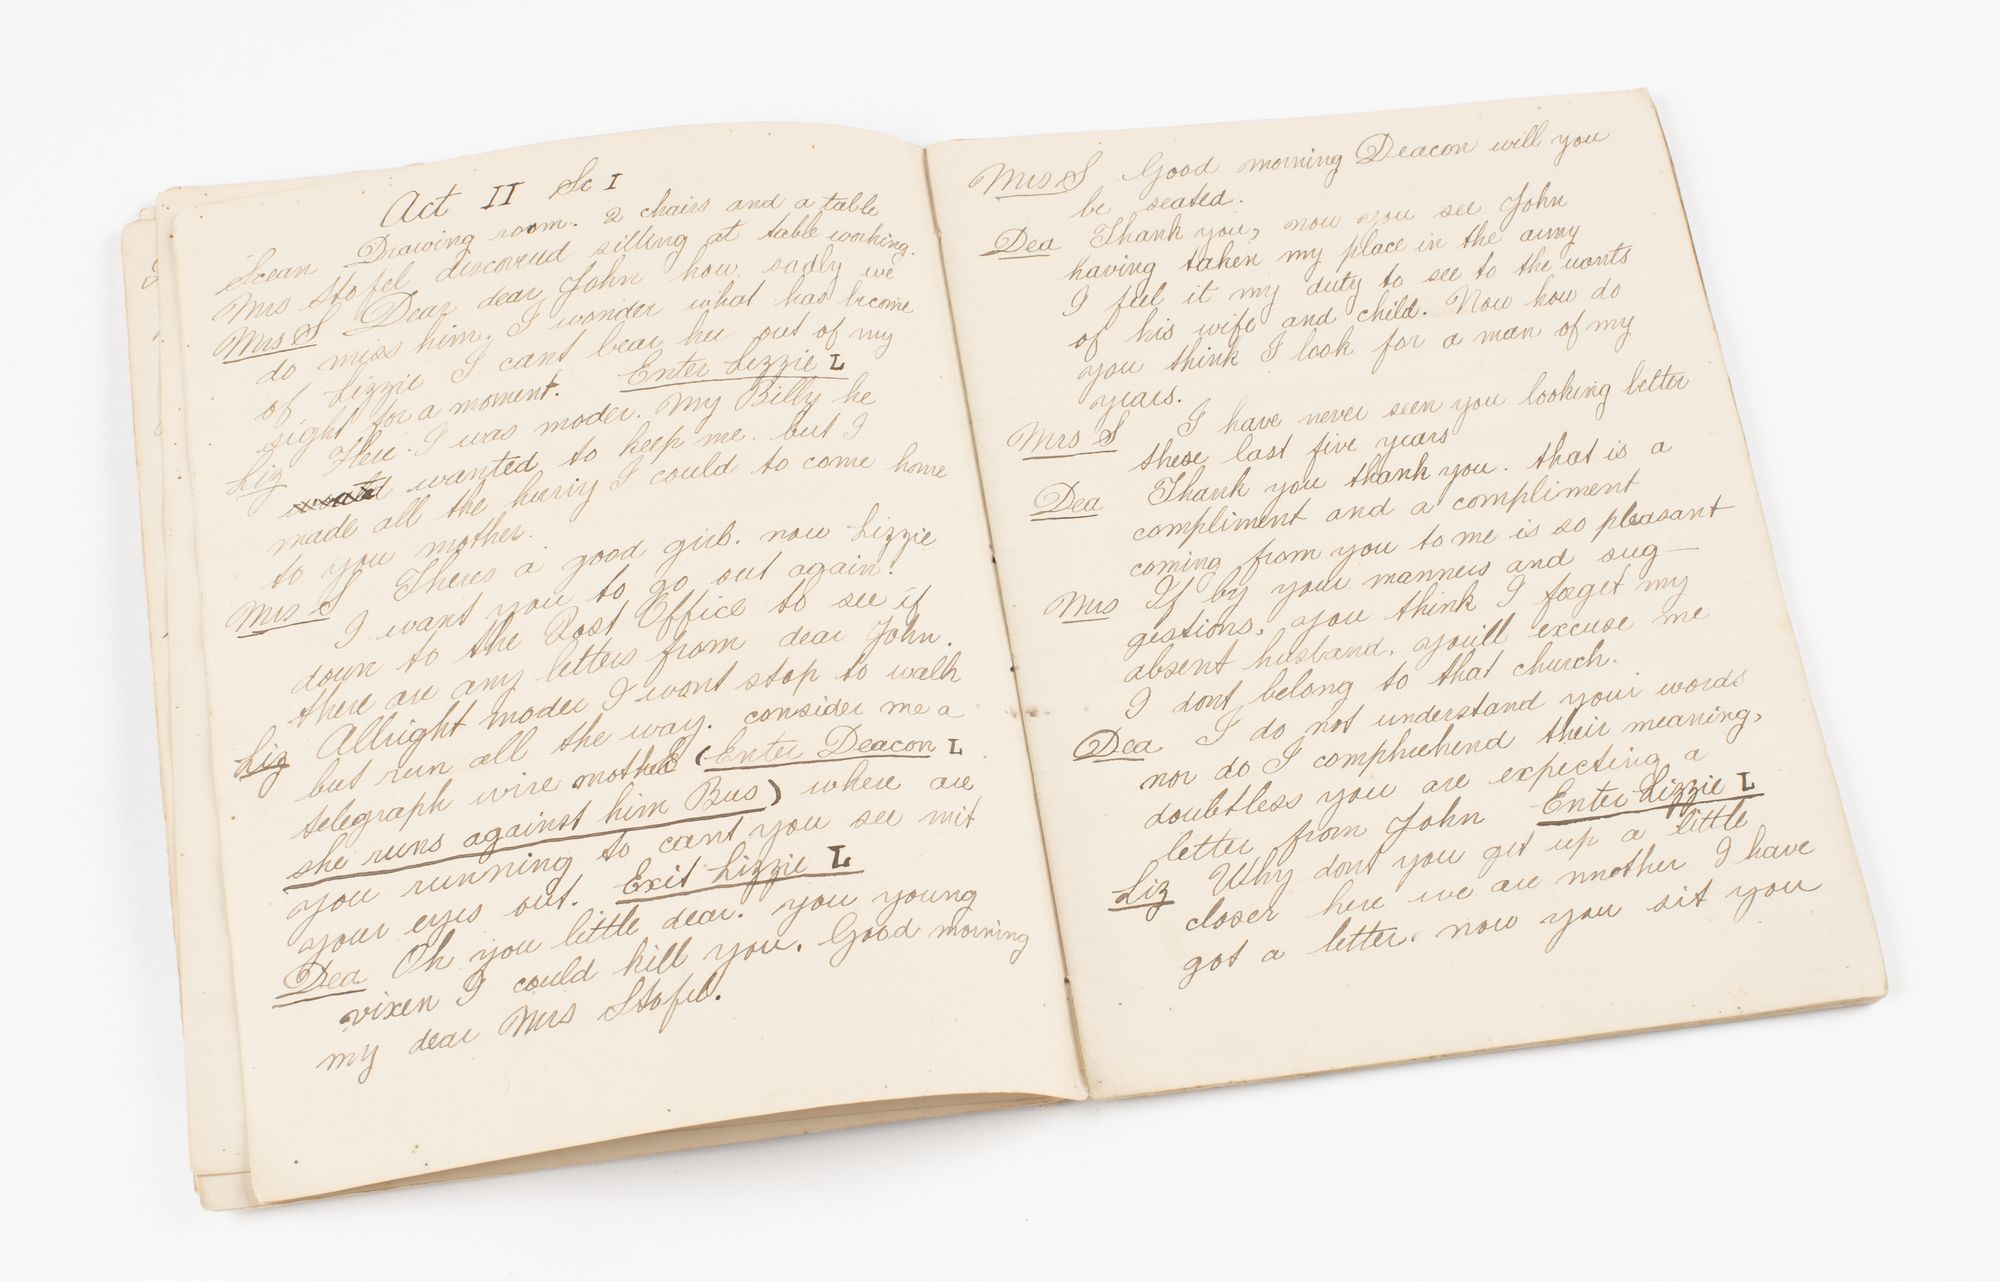 Act II Sc I
Scean Drawing room. 2 chairs and a table
Mrs Stofel discoverd sitting at table working.
Mrs S Dear dear John how sadly we
do miss him. I wonder what has become
of Lizzie I cant bear her out of my
sight for a moment. Enter Lizzie L
Liz Here I was moder. My Billy he
wanted to keep me. but I
made all the hurry I could to come home
to you mother.
Mrs S Theres a good girl. now Lizzie
I want you to go out again.
down to the Post Office to see if
there are any letters from dear John.
Liz Allright moder I wont stop to walk
but run all the way. consider me a
telegraph wire mother (Enter Deacon L
she runs against him Bus) where are
you running to cant you see mit
your eyes out. Exit Lizzie L
Dea Oh you little dear. you young
vixen I could kill you. Good morning
my dear Mrs Stofel.
Mrs S Good morning Deacon will you
be seated.
Dea Thank you, now you see John
having taken my place in the army
I feel it my duty to see to the wants
of his wife and child. Now how do
you think I look for a man of my
years.
Mrs S I have never seen you looking better
these last five years
Dea Thank you thank you. that is a
compliment and a compliment
coming from you to me is so pleasant
Mrs If by your manners and sug-
gestions, you think I forget my
absent husband, youill excuse me
I dont belong to that church.
Dea I do not understand your words
nor do I comphrehend their meaning,
doubtless you are expecting a
letter from John Enter Lizzie L
Liz Why dont you get up a little
closer here we are mother I have
got a letter. now you sit you